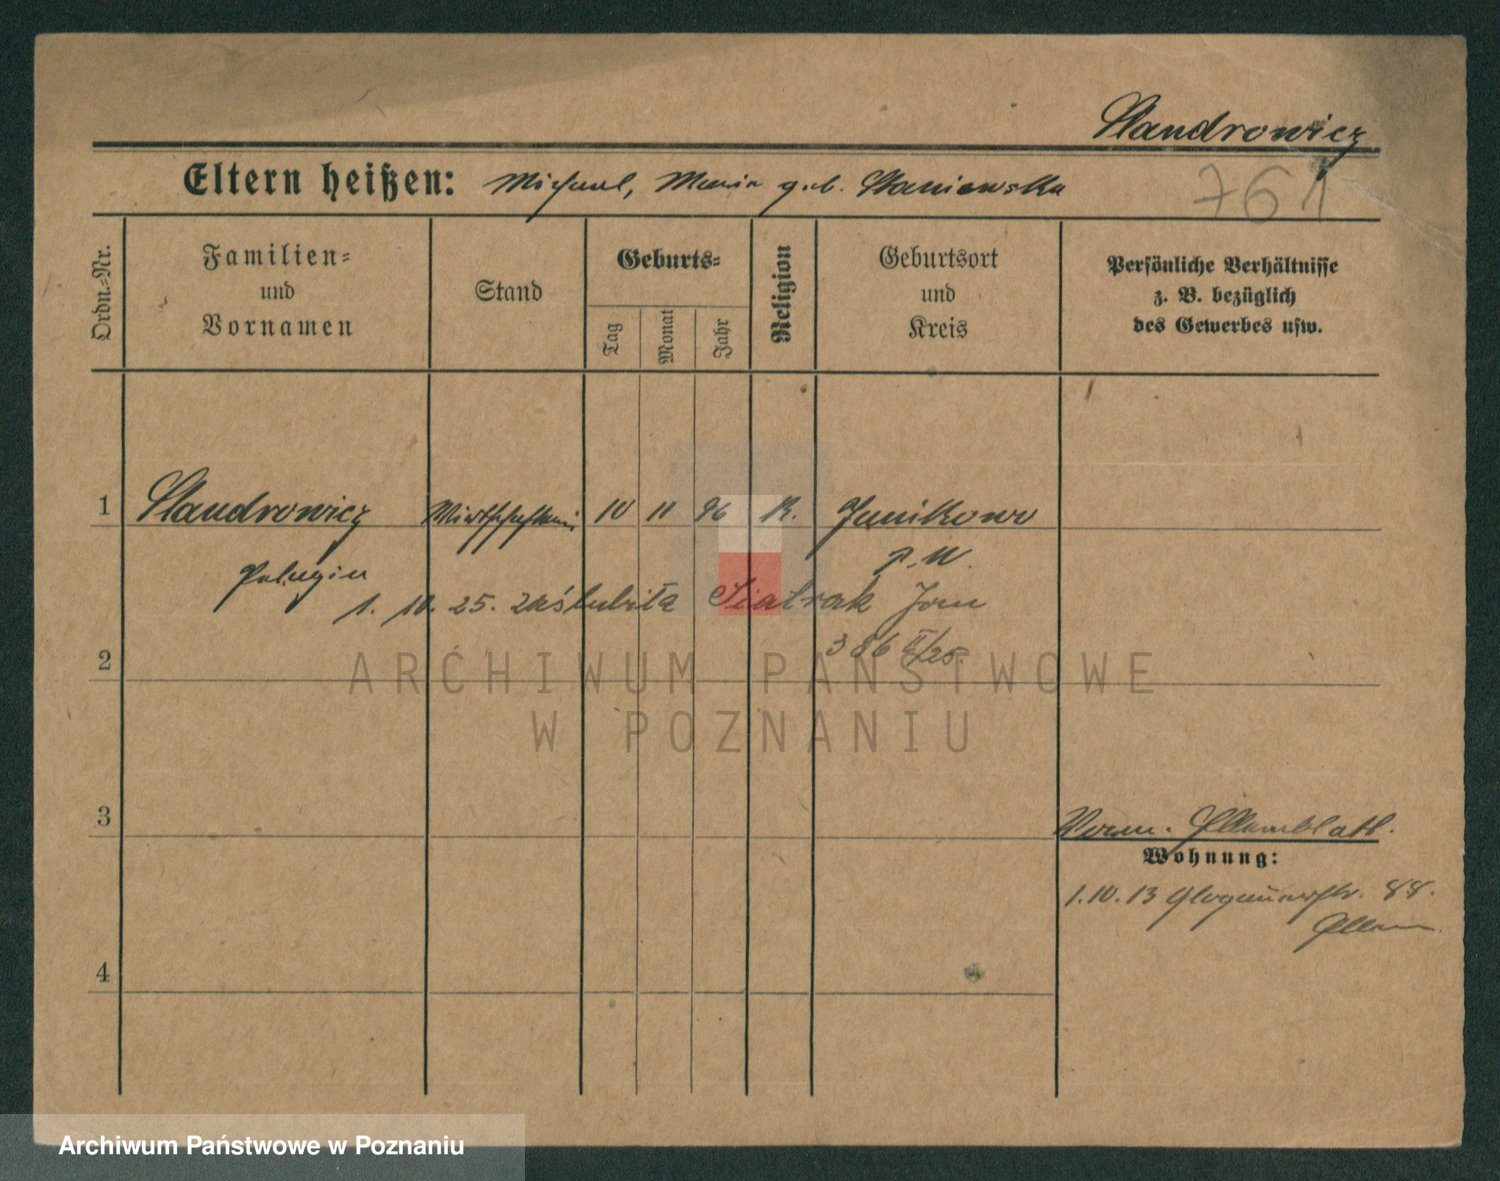 Standrowicz
Eltern heißen: Michael, Maria geb. Staniewska
761
Ordn.-Nr.
Familien-
und
Vornamen
Stand
Geburts-
Tag
Monat
Jahr
Religion
Geburtsort
und
Kreis
Persönliche Verhältnisse
z. B. bezüglich
des Gewerbes usw.
1 Standrowicz 10 11 96 K. Junikowo
P. W.
Pelagia
1. 10. 25. zaślubiła Siatrak Jan
386 II/25.
2
ARCHIWUM PAŃSTWOWE
W POZNANIU
3
Wohnung:
1.10.13 Glogauerstr. 88.
4
Archiwum Państwowe w Poznaniu